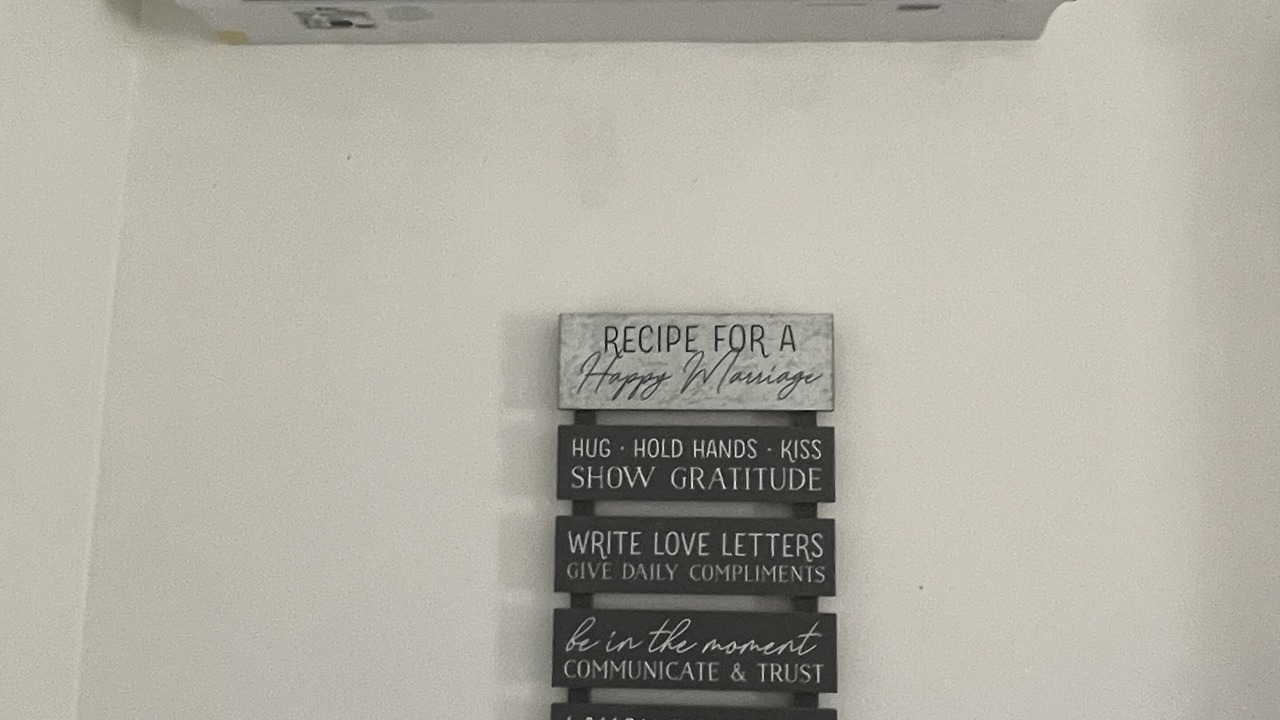 RECIPE FOR A
Happy Marriage
HUG · HOLD HANDS · KISS
SHOW GRATITUDE
WRITE LOVE LETTERS
GIVE DAILY COMPLIMENTS
be in the moment
COMMUNICATE & TRUST